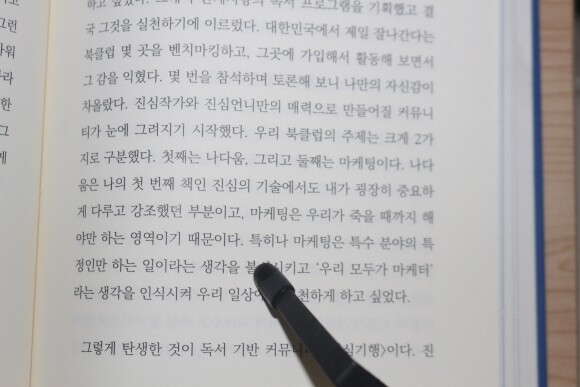 하고 싶었다.
독서 프로그램을 기획했고 결
국 그것을 실천하기에 이르렀다. 대한민국에서 제일 잘나간다는
북클럽 몇 곳을 벤치마킹하고, 그곳에 가입해서 활동해 보면서
그 감을 익혔다. 몇 번을 참석하며 토론해 보니 나만의 자신감이
차올랐다. 진심작가와 진심언니만의 매력으로 만들어질 커뮤니
티가 눈에 그려지기 시작했다. 우리 북클럽의 주제는 크게 2가
지로 구분했다. 첫째는 나다움, 그리고 둘째는 마케팅이다. 나다
움은 나의 첫 번째 책인 진심의 기술에서도 내가 굉장히 중요하
게 다루고 강조했던 부분이고, 마케팅은 우리가 죽을 때까지 해
야만 하는 영역이기 때문이다. 특히나 마케팅은 특수 분야의 특
정인만 하는 일이라는 생각을 시키고 ‘우리 모두가 마케터’
라는 생각을 인식시켜 우리 천하게 하고 싶었다.
그렇게 탄생한 것이 독서 기반 심기행>이다. 진